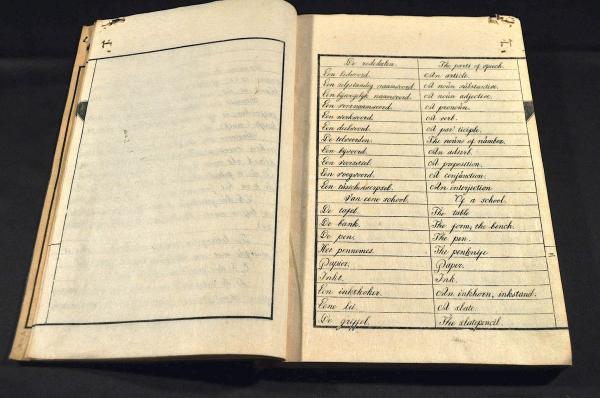 De rededeelen. The parts of speech.
Een lidwoord. An article.
Een zelfstandig naamwoord. A noun substantive.
Een bijvoegelijk naamwoord. A noun adjective.
Een voornaamwoord. A pronoun.
Een werkwoord. A verb.
Een deelwoord. A par'ticiple.
De telwoorden. The nouns of number.
Een bijwoord. An adverb.
Een voorzetsel. A preposition.
Een voegwoord. A conjunction.
Een tusschenwerpsel. An interjection.
Van eene school. Of a school.
De tafel. The table.
De bank. The form, the bench.
De pen. The pen.
Het pennemes. The penknife
Papier. Paper.
Inkt. Ink.
Een inktkoker. An inkhorn, inkstand.
Eene lei. A slate.
De griffel. The slatepencil.